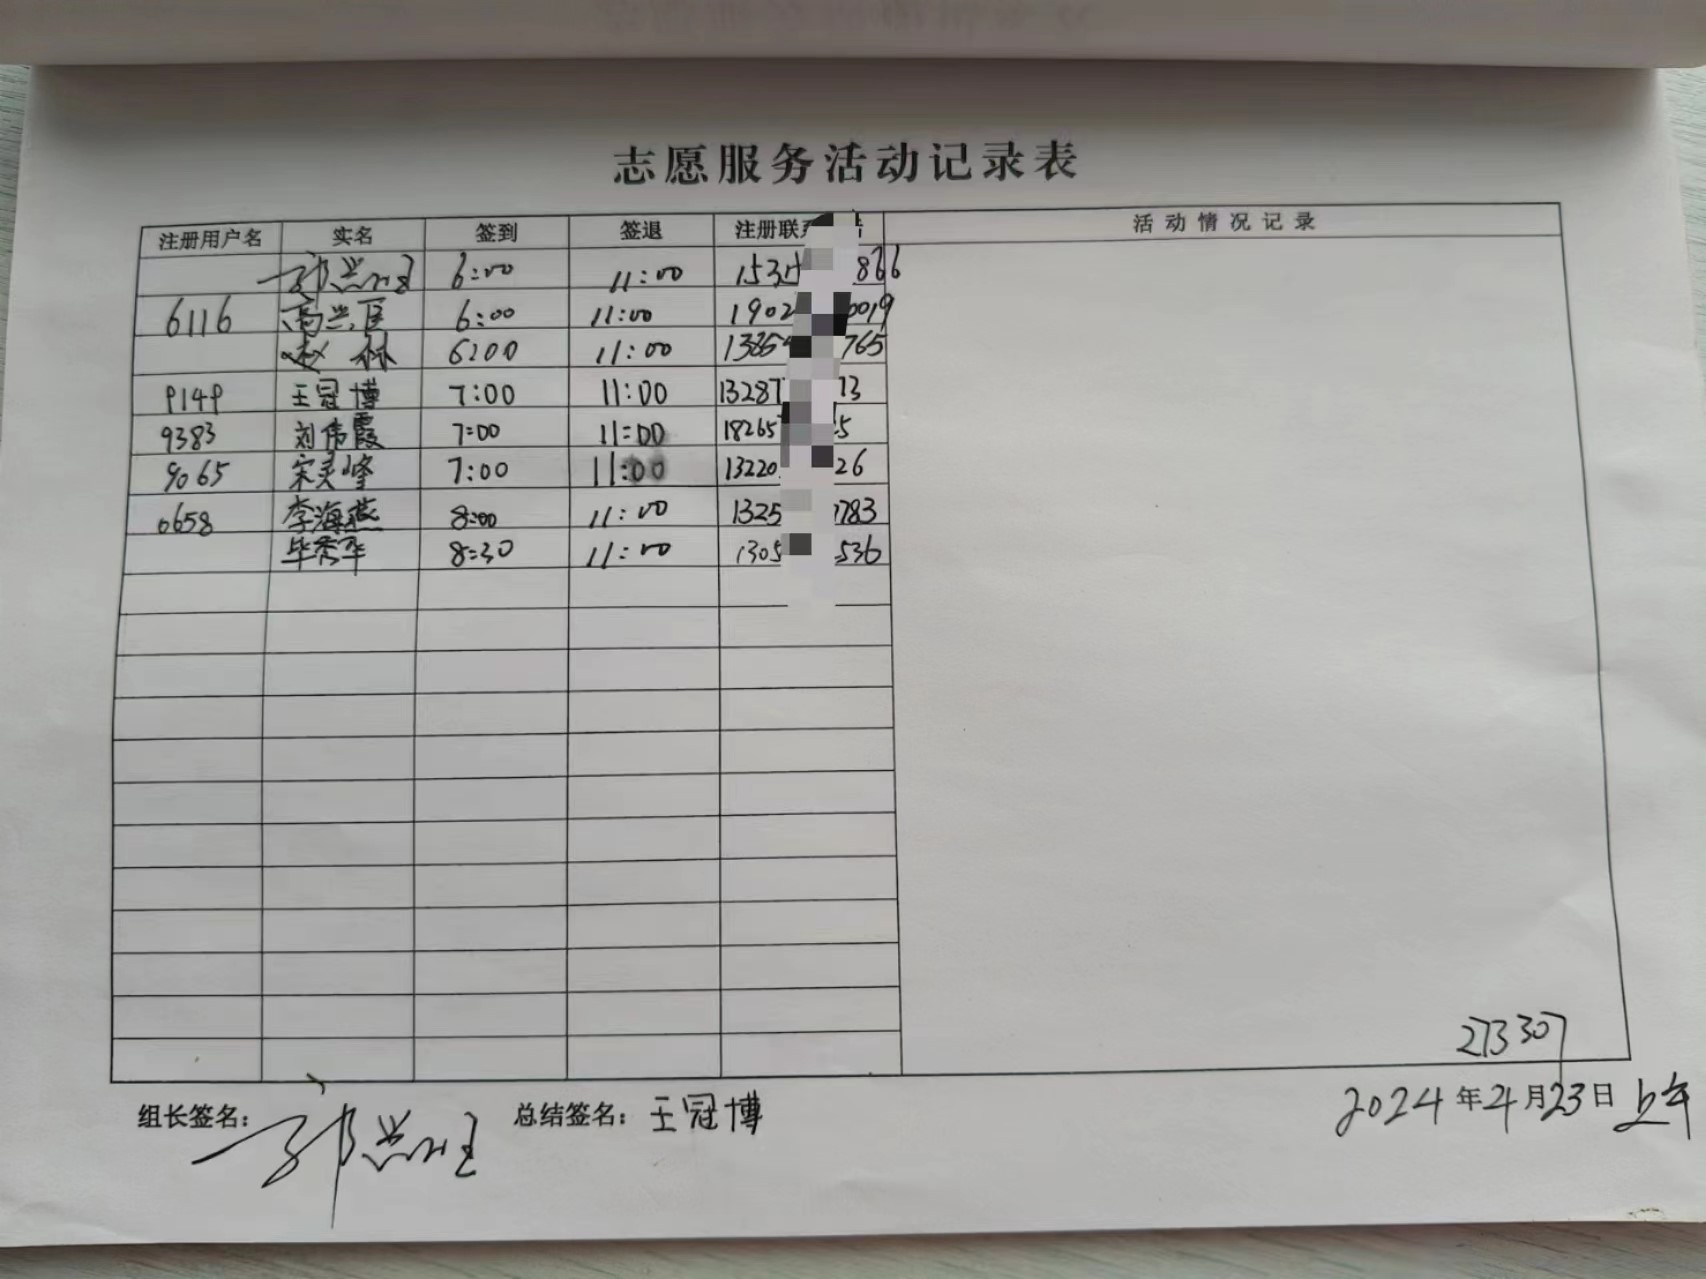 志愿服务活动记录表
注册用户名 实名 签到 签退 注册联系 活动情况记录
郭兴旺 6:00 11:00 153 866
6116 高兴臣 6:00 11:00 1902 0019
赵林 6:00 11:00 1385 765
9149 王冠博 7:00 11:00 13287 73
9383 刘伟霞 7:00 11:00 18265 5
9065 宋灵峰 7:00 11:00 13220 26
0658 李海燕 8:00 11:00 1325 783
毕秀华 8:30 11:00 1305 536
273307
组长签名: 郭兴旺 总结签名: 王冠博 2024年4月23日上午